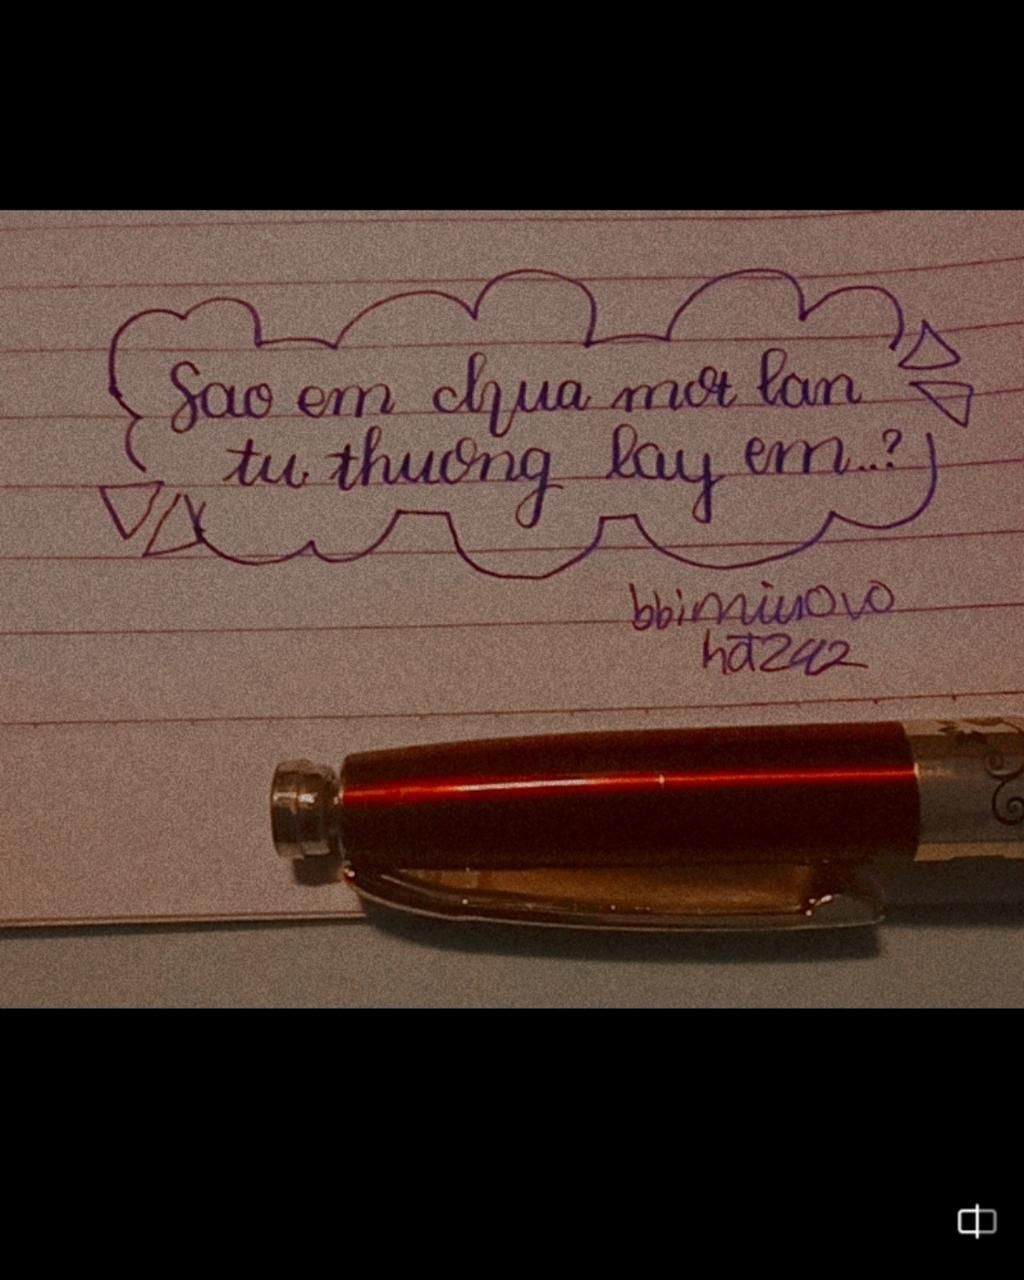 Sao em chua mot lan
tu thuong lay em...?
bbimiuovo
hdt242